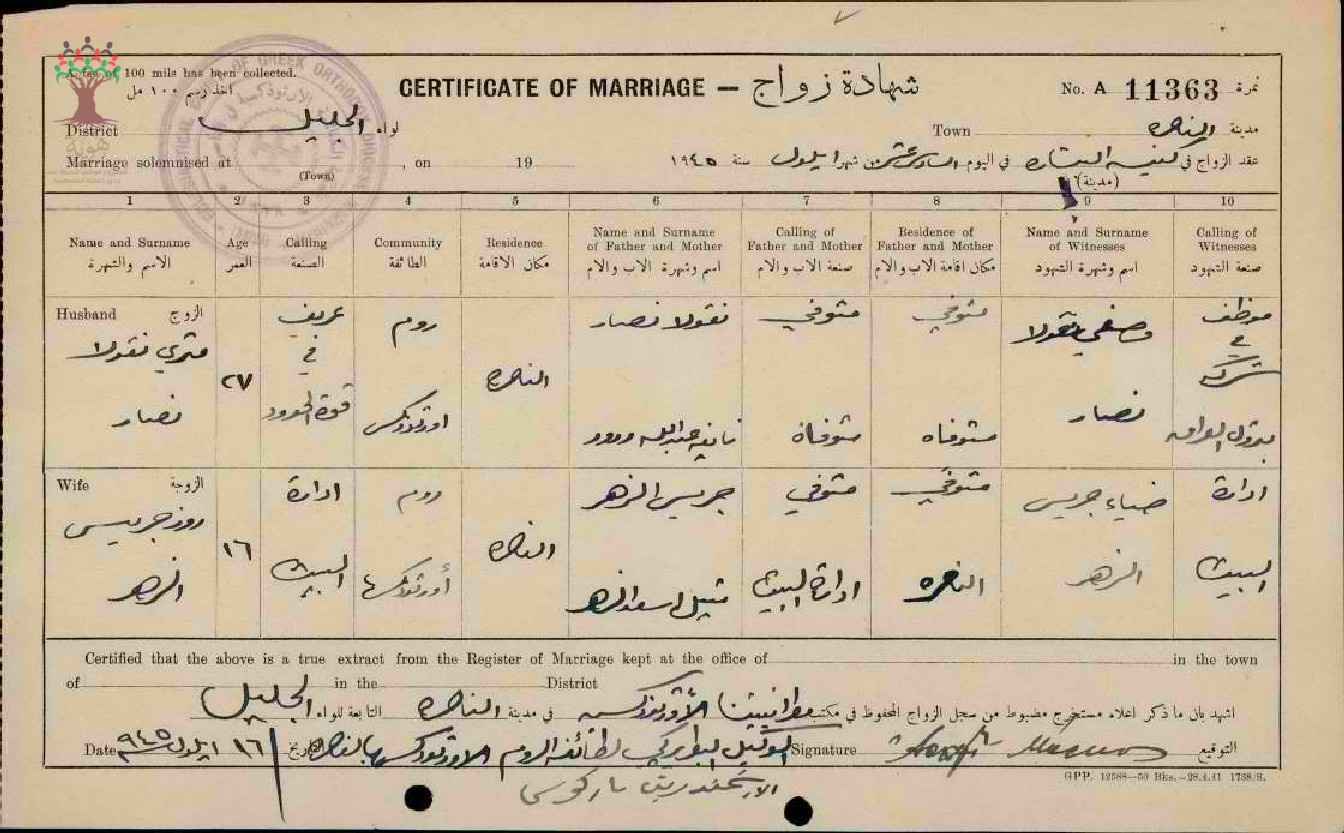 A fee of 100 mils has been collected.
اخذ رسم ١٠٠ مل
CERTIFICATE OF MARRIAGE — شهادة زواج
No. A 11363 نمرة
District الجليل لواء
Town الناصره مدينة
Marriage solemnised at , on 19
(Town)
عقد الزواج في كنيسة البشاره في اليوم السادس عشر من شهر ايلول سنة ١٩٤٥
(مدينة)
1 2 3 4 5 6 7 8 9 10
Name and Surname الاسم والشهرة
Age العمر
Calling الصنعة
Community الطائفة
Residence مكان الاقامة
Name and Surname of Father and Mother اسم وشهرة الاب والام
Calling of Father and Mother صنعة الاب والام
Residence of Father and Mother مكان اقامة الاب والام
Name and Surname of Witnesses اسم وشهرة الشهود
Calling of Witnesses صنعة الشهود
Husband الزوج
متري نقولا نصار
٢٧
عريف في قوة الحدود
روم اورثوذكس
الناصره
نقولا نصار
متوفي
متوفي
وصفي نقولا نصار
موظف في شركة
عبدالله
متوفاة
متوفاه
Wife الزوجة
روز جريس الزهر
١٦
ادارة البيت
روم أورثوذكس
الناصره
جريس الزهر
متوفي
متوفي
ضياء جريس الزهر
ادارة البيت
اسعد الزهر
ادارة البيت
الناصره
Certified that the above is a true extract from the Register of Marriage kept at the office of in the town
of in the District
اشهد بان ما ذكر اعلاه مستخرج مضبوط من سجل الزواج المحفوظ في مكتب مطرانيتنا الأورثوذكسية في مدينة الناصرة التابعة للواء الجليل
Date ١٦ ايلول ٩٤٥ التاريخ
الوكيل البطريركي لطائفة الروم الاورثوذكس بالناصره
Signature التوقيع
الارشمندريت ماركوس
GPP. 12588—50 Bks.—28.4.41 1738/S.